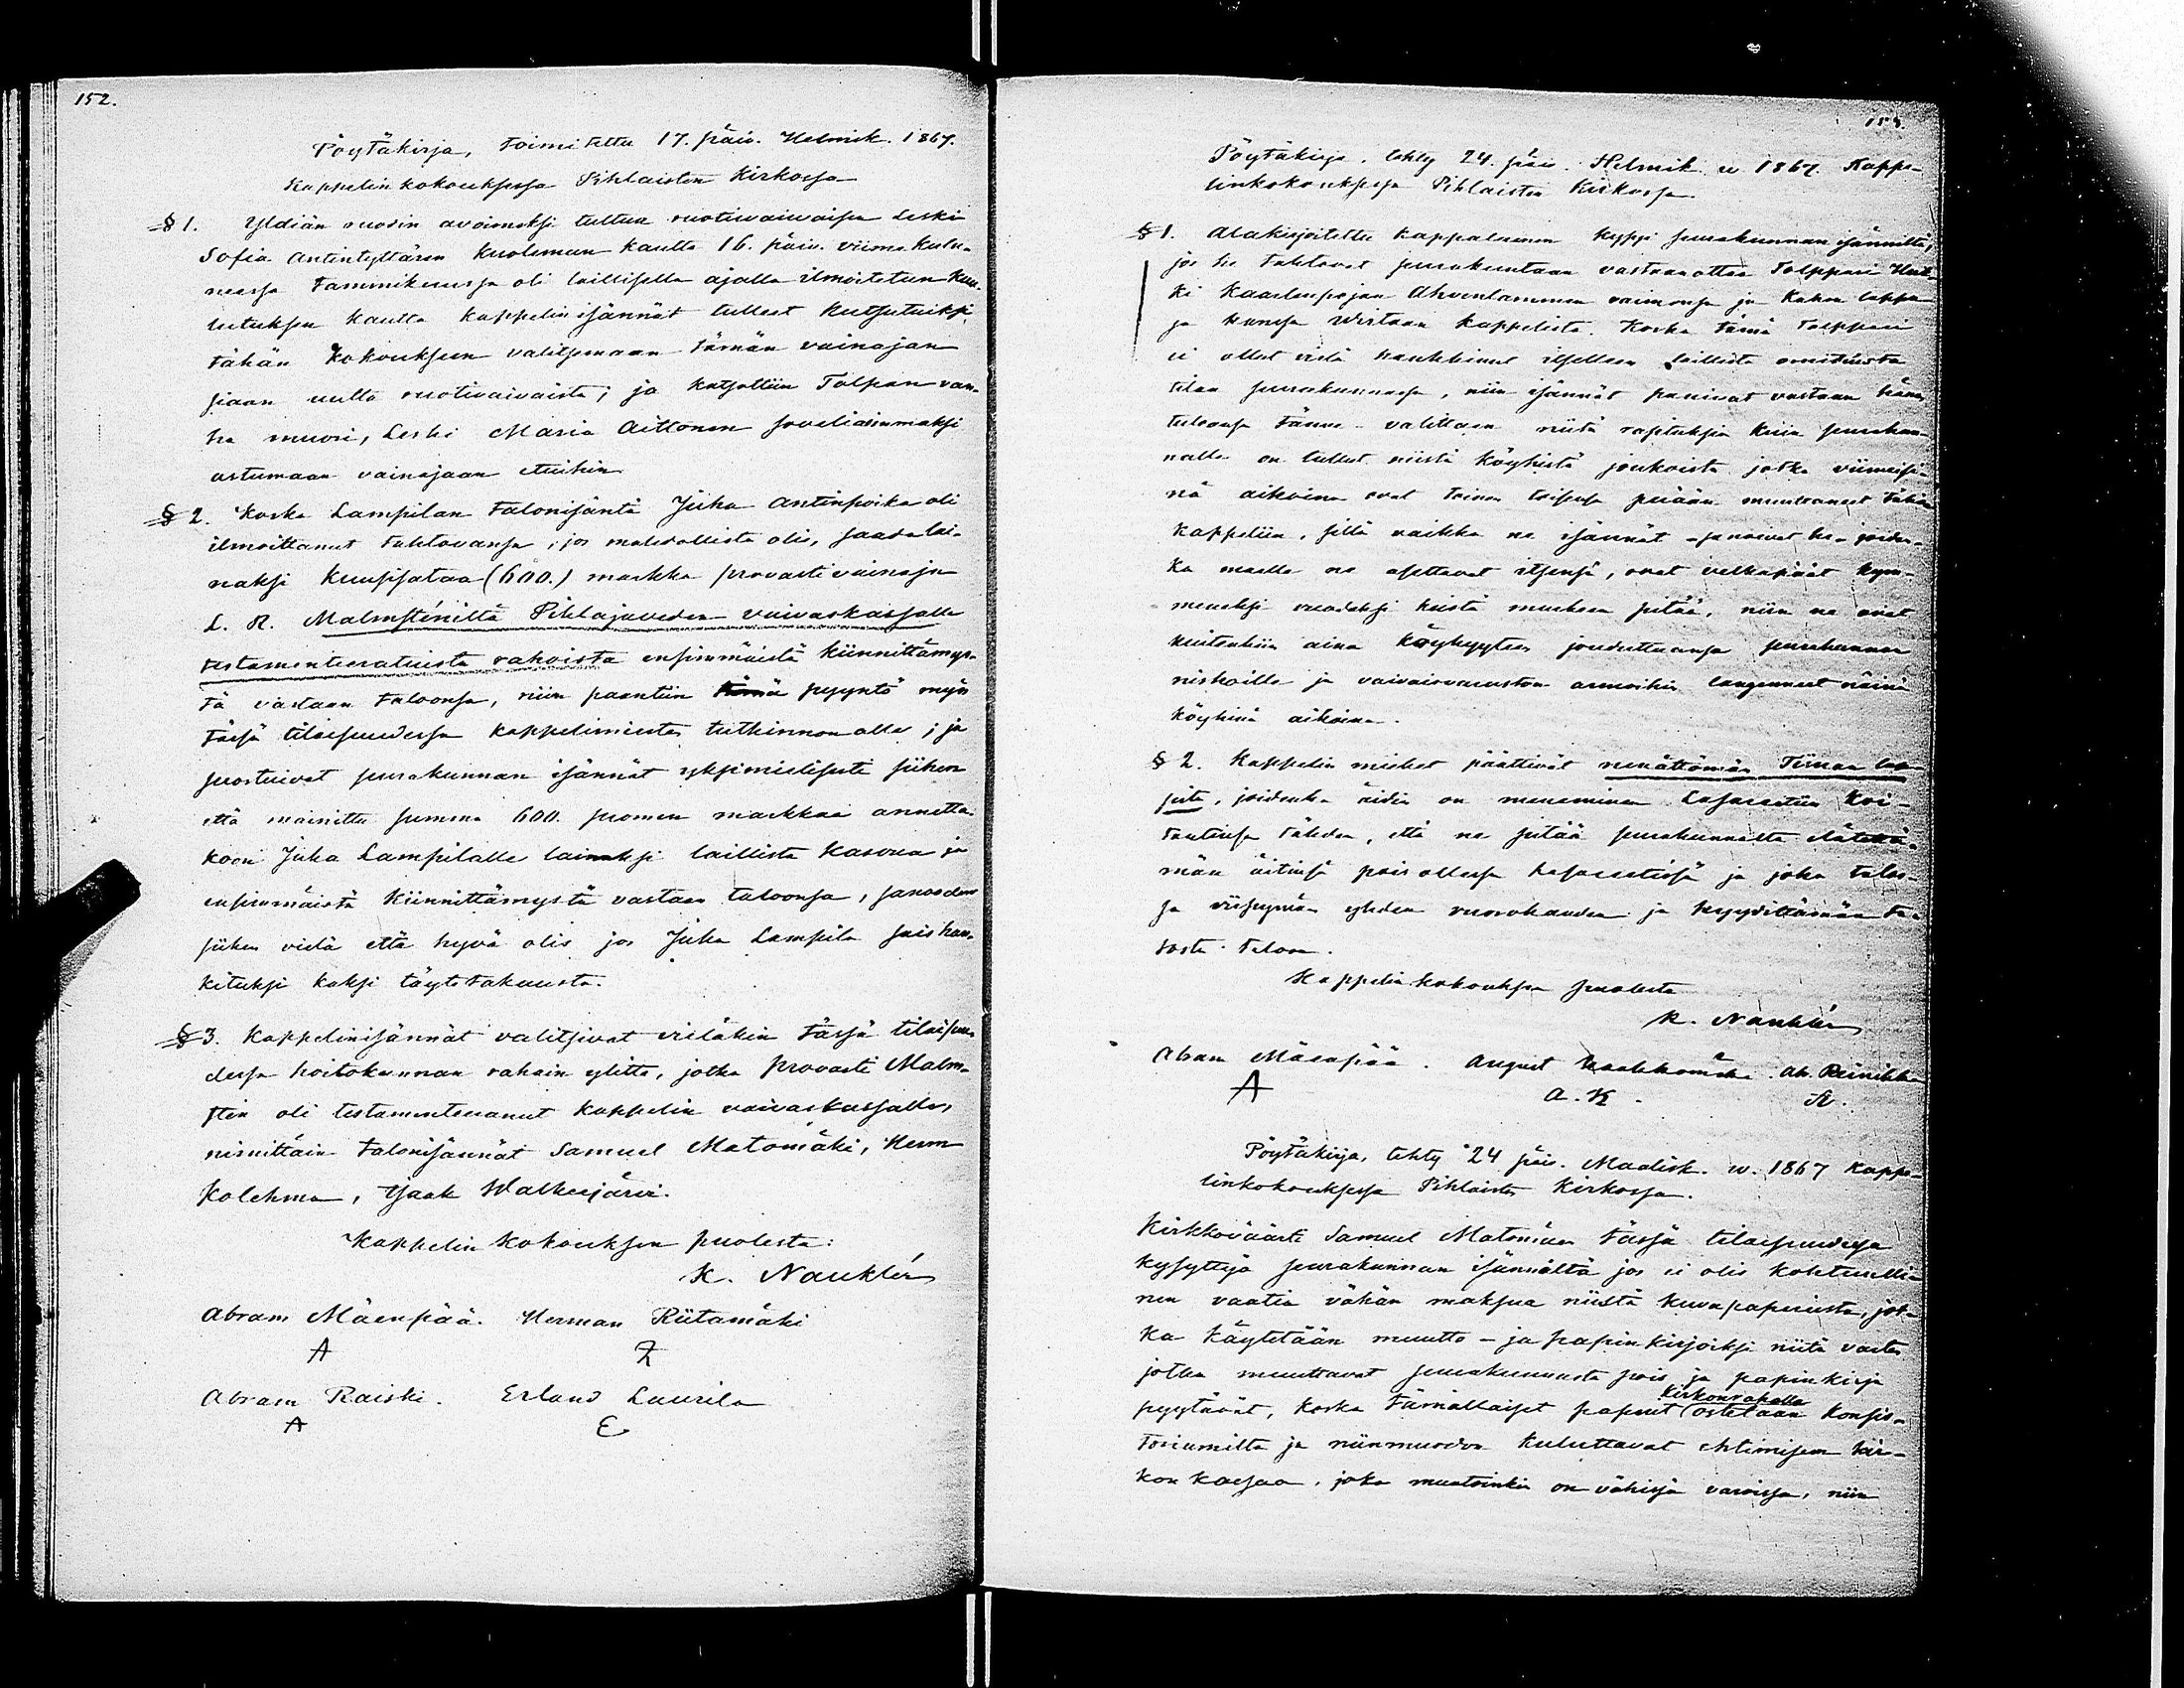 152.
Pöytäkirja, toimitettu 17. päiv. Helmik. 1867.
kappelin kokouksessa Pihlaisten Kirkossa
§ 1. Yldiän ruodin avoimeksi tultua ruotivaivaisen Leski
Sofia Antintyttären kuoleman kautta 16. päiv. viime kulu-
neessa Tammikuussa oli laillisella ajalla ilmoitetun kuu-
lutuksen kautta kappelin isännät tulleet kutsutuiksi
tähän kokoukseen valitsemaan tämän vainajan
siaan uutta ruotivaivaista; ja katsottiin Tolpan van-
ha muori, Leski Maria Aittonen soveliaimmaksi
astumaan vainajaan etuihin
§ 2. Koska Lampilan talonisäntä Juha Antinpoika oli
ilmoittanut tahtovansa, jos mahdollista olis, saada lai-
naksi kuusisataa (600.) markka provasti vainaja
L. R. Malmsténiltä Pihlajaveden vaivaskassalle
testamenteeratuista rahoista ensimmäistä kiinnittämys-
tä vastaan taloonsa, niin pantiin tämä pyyntö myös
tässä tilaisuudessa kappelimiesten tutkinnon alle; ja
suostuivat seurakunnan isännät yksimielisesti siihen
että mainittu summa 600. suomen markkaa annetta-
koon Juha Lampilalle lainaksi laillista kasvua ja
ensimmäistä kiinnittämystä vastaan taloonsa, sanoeden
siihen vielä että hyvä olis jos Juha Lampila sais han-
kituksi kaksi täyttä takausta.
§ 3. Kappelinisännät valitsivat vieläkin tässä tilaisuu-
dessa hoitokunnan rahain ylitte, jotka Provasti Malm-
stén oli testamenteeranut kappelin vaivaskassalle,
nimittäin talonisännät Samuel Matomäki, Herm
Kolehma, Isaak Walkeejärvi.
Kappelin kokouksen puolesta:
K. Nauklér
Abram Mäenpää. Herman Riitamäki
A
Abram Raiski. Erland Laurila
A E
153.
Pöytäkirja, tehty 24. päiv. Helmik. w 1867. Kappe-
linkokouksessa Pihlaisten Kirkossa.
§ 1. Alakirjoitettu kappalainen kysyi seurakunnan isänniltä,
jos he tahtovat seurakuntaan vastaanottaa Talppari Heik-
ki Kaarlenpojan Ahvenlammen vaimonsa ja kahen lapsen-
sa kanssa Wirtain kappelista. Koska tämä talppari
ei ollut vielä hankkinut itsellensä laillista omistusta
tilaa seurakunnassa, niin isännät panivat vastaan hänen
tuloansa tänne valittaen niitä rasituksia kuin seurakun-
nalle on tullut niistä köyhistä joukoista jotka viimeisi-
nä aikoina ovat toinen toisensa perään muuttaneet tähän
kappeliin, sillä vaikka ne isännät – sanoivat he – joiden-
ka maalle ne asettavat itsensä, ovat velkapäät kym-
meneksi vuodeksi heistä murheen pitää, niin ne ovat
kuitenkin aina köyhyyteen jouduttuansa seurakunnan
niskoille ja vaivaisvaraston armoihin langenneet näinä
köyhinä aikoina.
§ 2. Kappelin miehet päättivät nenättömän Tiinan lap-
sista, joidenka äidin on meneminen Lasareettiin koi-
tautinsa tähden, että ne pitää seurakunnalta elätettä-
män äitinsä pois ollessa lasareetissä ja joka talos-
sa viipymän yhden vuorokauden ja kyydittämän ta-
losta taloon.
Kappelin kokouksen puolesta
K. Nauklér
Abram Mäenpää. August Kaakkomäki. Ab. Reinikka
A A. K. R.
Pöytäkirja, tehty 24 päiv. Maalisk. w. 1867 kappe-
linkokouksessa Pihlaisten Kirkossa.
Kirkkoväärti Samuel Matomäen tässä tilaisuudessa
kysyttyä seurakunnan isänniltä jos ei olis kohtuulli-
nen vaatia vähän maksua niistä kuvapapereista, jot-
ka käytetään muutto- ja papinkirjoiksi niitä varten
jotka muuttavat seurakunnasta pois ja papinkirja
pyytävät, koska tämällaiset paperit ostetaan kirkonrahalla Konsis-
toriumilta ja niinmuodon kuluttavat ehtimisen kir-
kon kassaa, joka muutoinkin on vähissä varoissa, niin